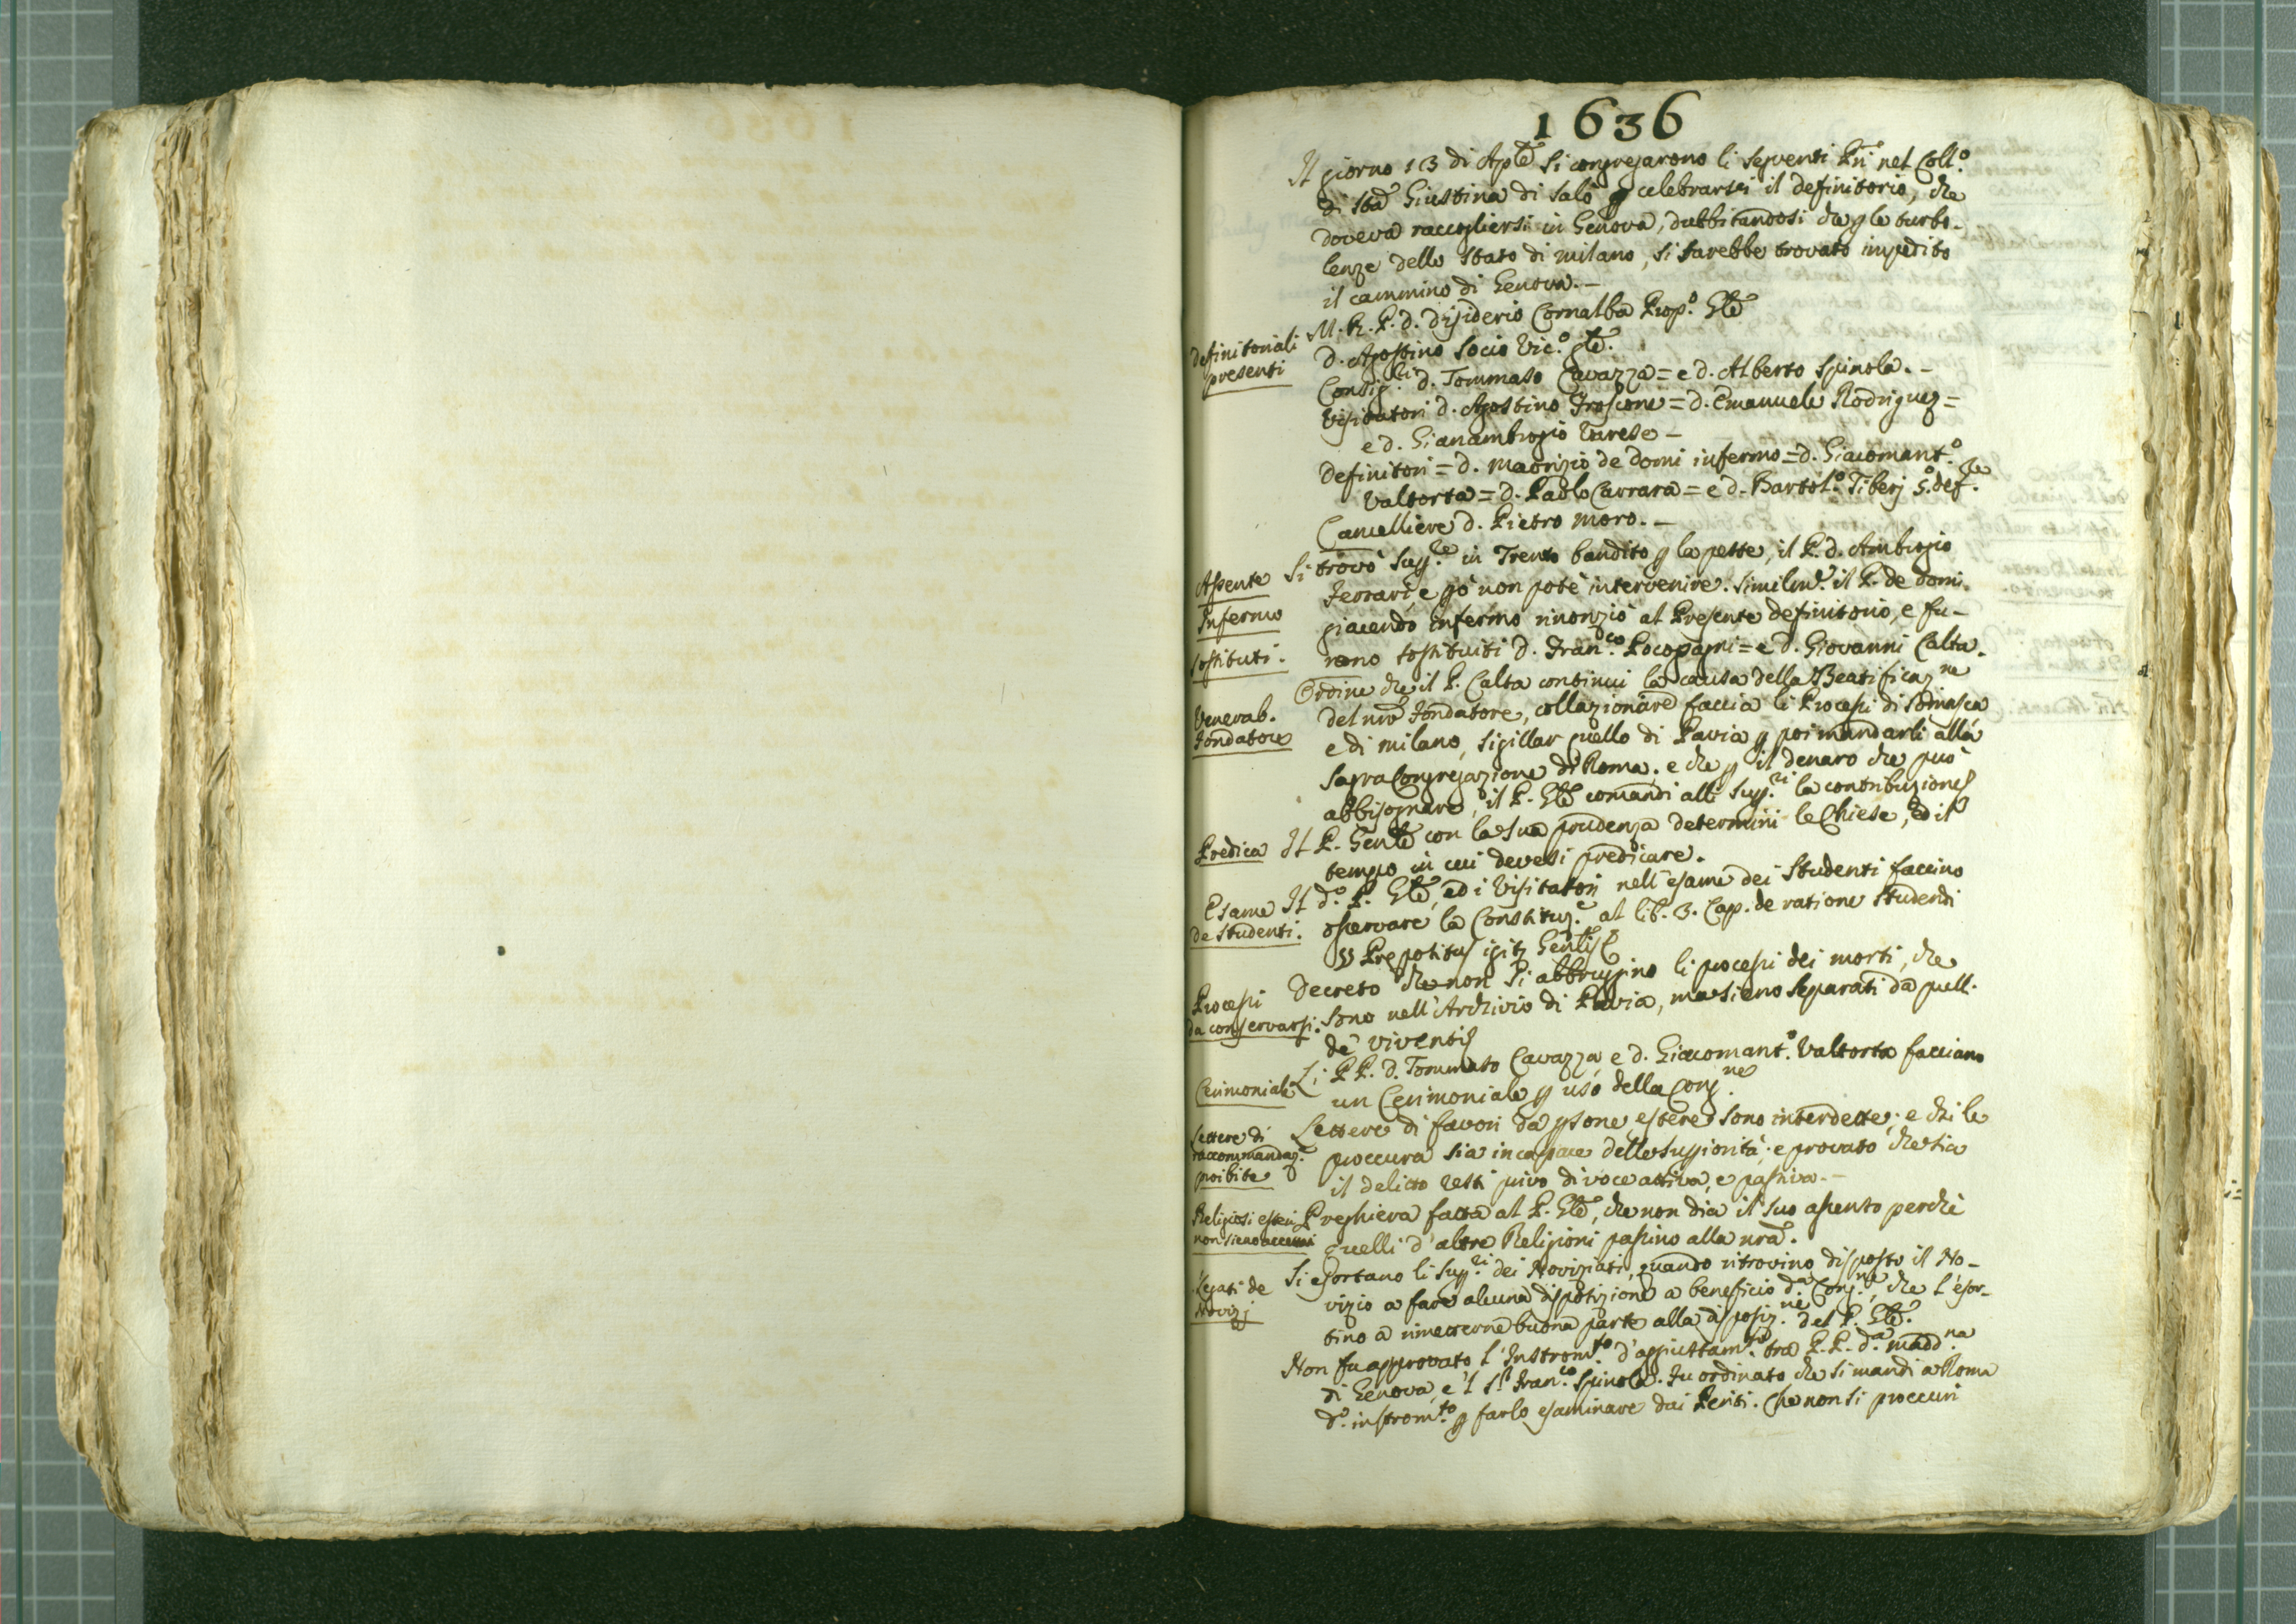 1636
Il giorno 13 di Aple si congregarono li seguenti Pri nel Coll.o
di Sta Giustina di Salò p celebrarsi il definitorio, che
doveva raccogliersi in Genova, dubbitandosi che p le turbo-
lenze dello Stato di Milano, si sarebbe trovato impedito
il cammino di Genova.-
Definitoriali
presenti
M. R. P. d. Disiderio Cornalba Prop.o Gle
d. Agostino Socio Vic.o gle.
Consig.ri d. Tommaso Cavazza = e d. Alberto Spinola.-
Visitatori d. Agostino Froscone = d. Emanuele Rodriguez =
e d. Gianambrogio Varese -
Definitori = d. Maorizio de Domi infermo = d. Giacomant.o
Valtorta = d. Paolo Carrara = e d. Bartol.o Tiberj S.o def.re
Cancelliere d. Pietro Moro.-
Assente
Si trovò Sup.re in Trento bandito p la peste, il P. d. Ambrogio
Ferrari, e pò non potè intervenire. Similm.e il P. de Domi
Infermo
giacendo infermo rinonziò al Presente definitorio, e fu-
Sostituti.
rono sostituiti d. Fran.co Pocopagni = e d. Giovanni Calta.
Venerab.
Fondatore
Ordine che il P. Calta continui la causa della Beatificaz.ne
del nro Fondatore, collazionare faccia li Processi di Somasca
e di Milano, sigillar quello di Pavia p poi mandarli alla
Sagra Congregazione di Roma. e che p il denaro che può
abbisognare, il P. Gle comandi alli Sup.ri la contribuzione
Predica
Il P. Genle con la sua prudenza determini le Chiese, ed il
tempo in cui devesi predicare.
Esame
de Studenti.
Il d.o P. Gle, ed i Visitatori nell'esame dei Studenti faccino
osservare la Constituz.e al lib. 3. Cap. de ratione Studendi
§§ Prepositus igitz Genlis
Processi
da conservarsi.
Decreto che non si abbruggino li processi dei morti, che
sono nell'Archivio di Pavia, ma sieno separati da quelli
de' viventi
Cerimoniale
Li PP. d. Tommaso Cavazza, e d. Giacomant.o Valtorta facciano
un Cerimoniale p uso della Cong.ne
Lettere di
raccommandaz.e
proibite
Lettere di favori da psone estere sono interdette; e chi le
proccura sia incapace delle supiorità; e provato che sia
il delitto resti privo di voce attiva, e passiva.-
Religiosi esteri
non sieno accettati
Preghiera fatta al P. Gle, che non dia il suo assento perchè
quelli d'altre Religioni passino alla nra.
Legati de
Novizj
Si esortano li Sup.ri dei Noviziati, quando ritrovino disposto il No-
vizio a fare alcuna disposizione a beneficio d.a Cong.ne, che l'esor-
tino a rimetterne buona parte alla disposiz.ne del P. Gle.
Non fu approvato l'Instrom.to d'aggiustam.to tra P.P. d.a Madd.na
di Genova, e'l S.r Fran.co Spinola. Fu ordinato che si mandi a Roma
d.o instrom.to p farlo esaminare dai Periti. Che non si proccuri